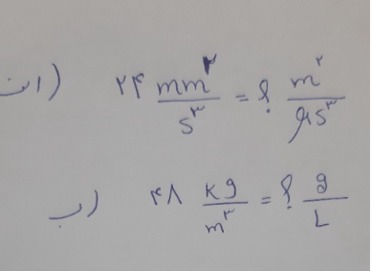 الف) ۲۴ mm^۲/s^۳ = ? m^۲/μs^۳
ب) ۴۸ kg/m^۳ = ? g/L